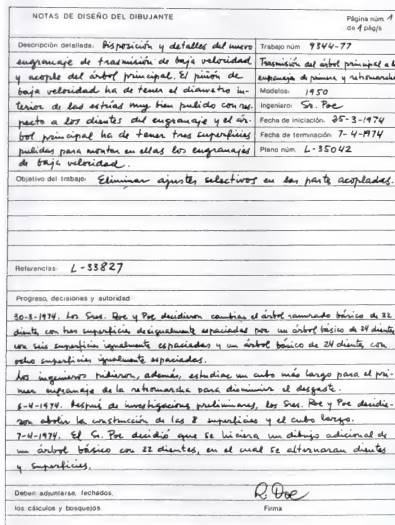 NOTAS DE DISEÑO DEL DIBUJANTE
Página núm. 1
de 1 pág/s
Descripción detallada. Disposición y detalles del nuevo
engranaje de trasmisión de baja velocidad
y acople del árbol principal. El piñón de
baja velocidad ha de tener el diametro in-
terior de las estrías muy bien pulido con res-
pecto a los dientes del engranaje y el ár-
bol principal ha de tener tres superficies
pulidas para montar en ellas los engranajes
de baja velocidad.
Trabajo núm 9344-77
Trasmisión del árbol principal a los
engranajes de primera y retromarcha
Modelos: 1950
Ingeniero: Sr. Poe
Fecha de iniciación. 25-3-1974
Fecha de terminación. 7-4-1974
Plano núm. L-35042
Objetivo del trabajo: Eliminar ajustes selectivos en las partes acopladas.
Referencias. L-33827
Progreso, decisiones y autoridad
30-3-1974. Los Sres. Roe y Poe decidieron cambiar el árbol ranurado básico de 22
dientes con tres superficies desigualmente espaciadas por un árbol básico de 24 dientes
con seis superficies igualmente espaciadas y un árbol básico de 24 dientes con
ocho superficies igualmente espaciadas.
Los ingenieros pidieron, además, estudiar un cubo más largo para el pri-
mer engranaje de la retromarcha para disminuir el desgaste.
6-4-1974. Después de investigaciones preliminares, los Sres. Roe y Poe decidie-
ron abolir la construcción de las 8 superficies y el cubo largo.
7-4-1974. El Sr. Poe decidió que se hiciera un dibujo adicional de
un árbol básico con 22 dientes, en el cual se alternaran dientes
y superficies.
Deben adjuntarse, fechados,
los cálculos y bosquejos.
R Doe
Firma